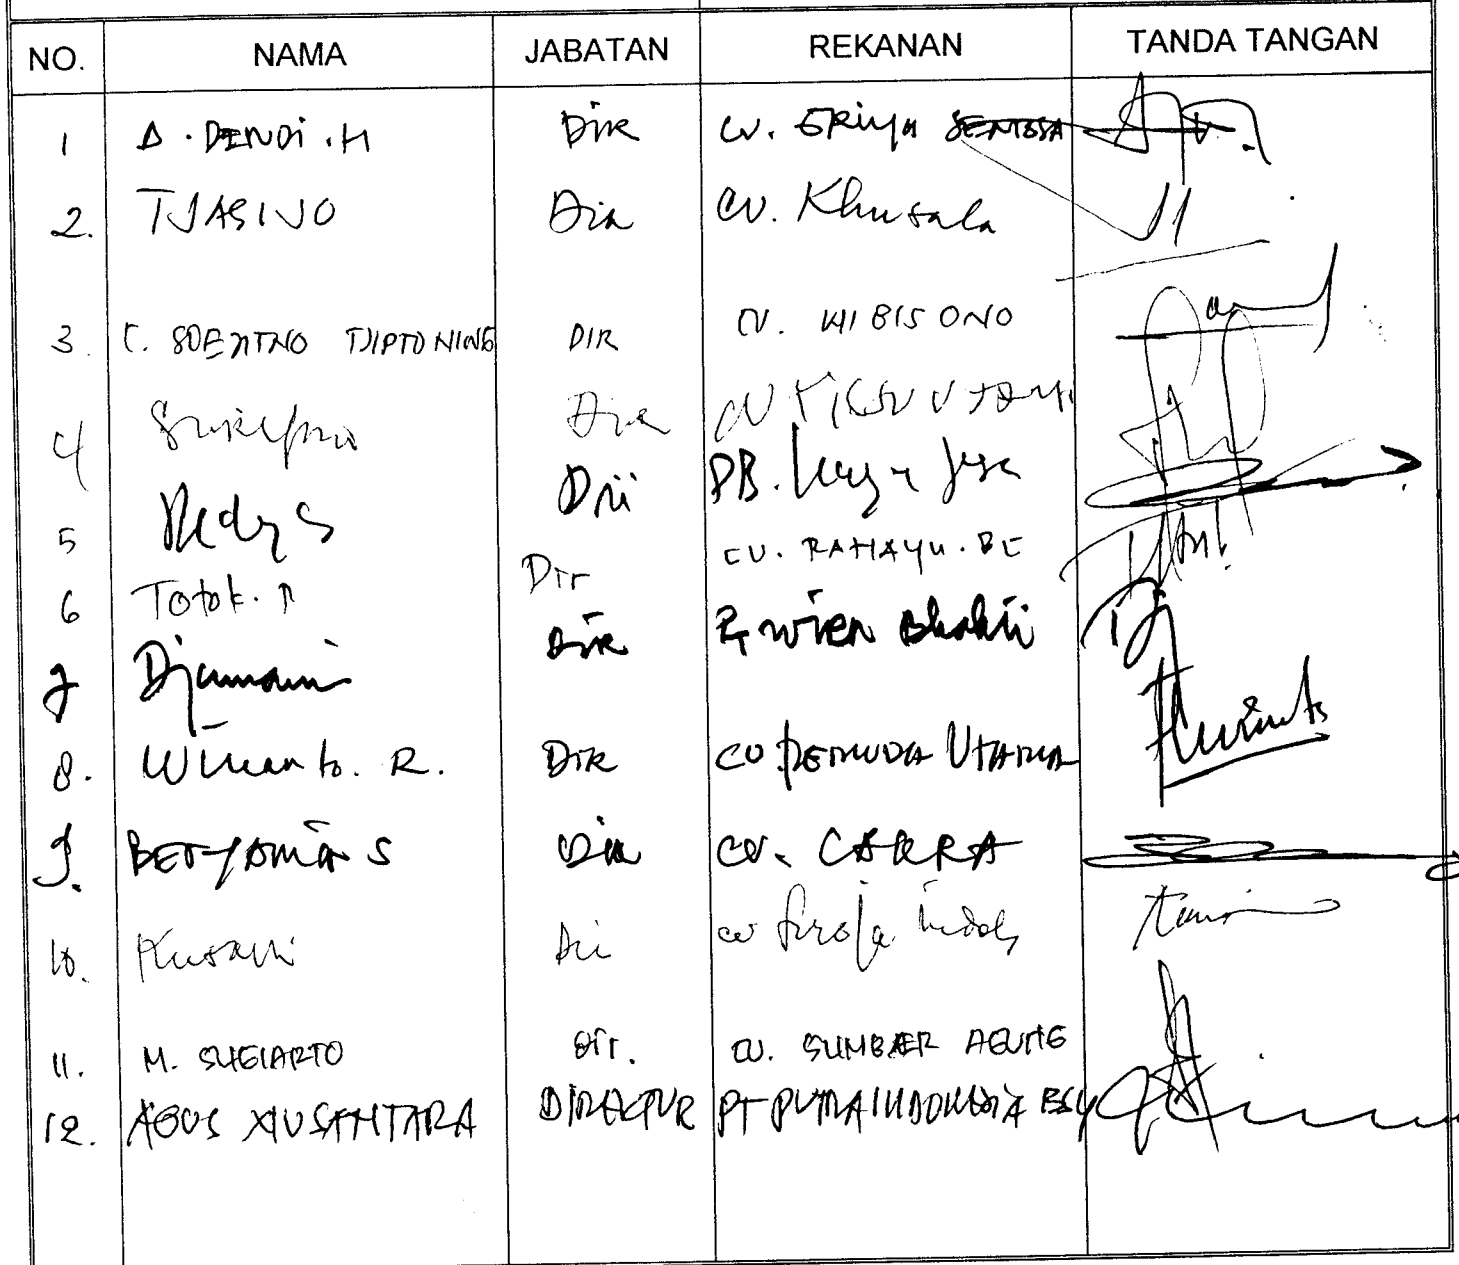 NO. NAMA JABATAN REKANAN TANDA TANGAN
1 D. DENDI. H Dir CV. GRIYA SENTOSA
2. TJASIJO Dir CV. Khusala
3. C. SOETITNO TJIPTONING DIR CV. WIBISONO
4 Dir CV
5 Dedy S Dir PB.
6 Totok. Dir CV. RAHAYU. BE
7 Djumain Dir PT WIEN Bhakti
8. Winanto. R. DIR CV PEMUDA UTAMA
9. BENYAMIN S Dir CV. CAKRA
10. Kusaeri Dir CV
11. M. SUGIARTO Dir. CV. SUMBER AGUNG
12. AGUS NUSANTARA DIREKTUR PT PUTRA INDONESIA